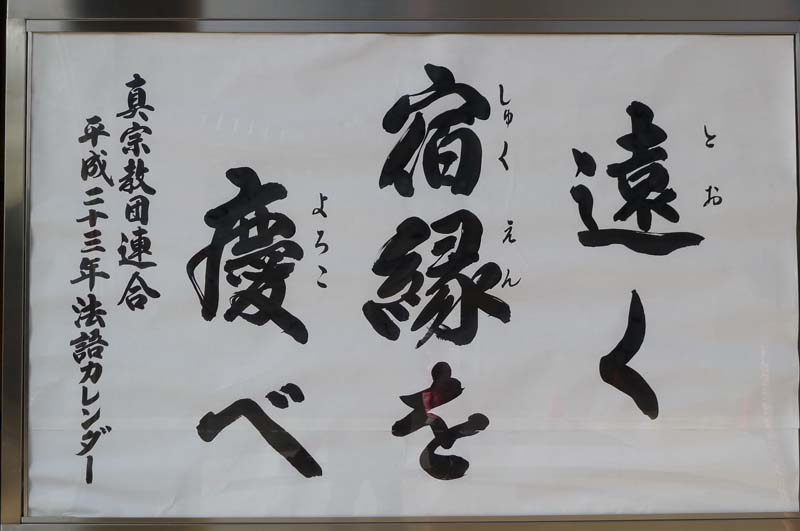 遠く
とお
宿縁を
しゅくえん
慶べ
よろこ
真宗教団連合
平成二十三年法語カレンダー